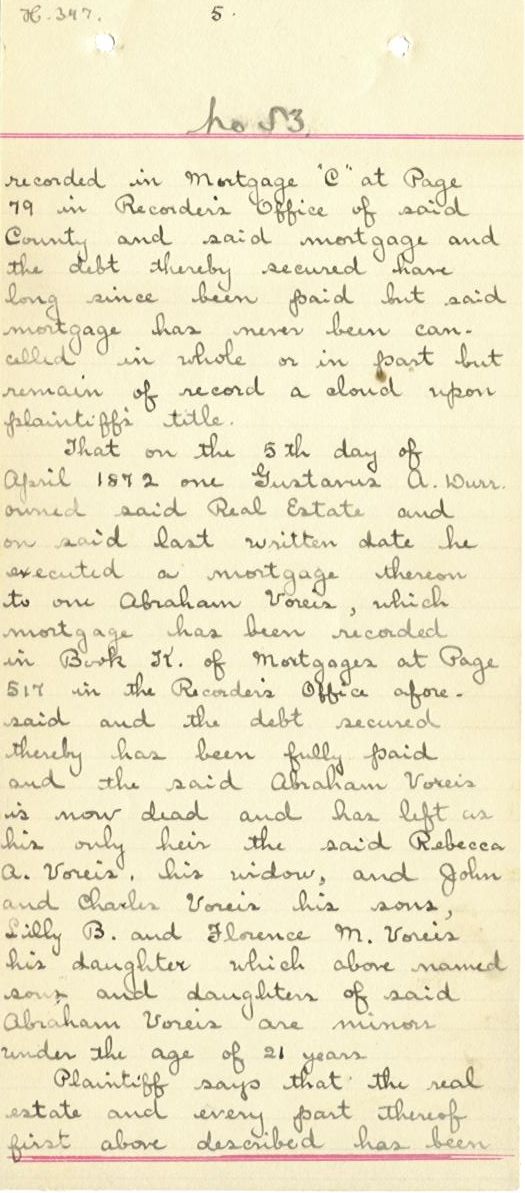 H. 347. 5.
No 53.
recorded in Mortgage "C" at Page
79 in Recorder's Office of said
County and said mortgage and
the debt thereby secured have
long since been paid but said
mortgage has never been can-
celled in whole or in part but
remain of record a cloud upon
plaintiff's title.
That on the 5th day of
April 1872 one Gustavus A. Durr.
owned said Real Estate and
on said last written date he
executed a mortgage thereon
to one Abraham Voreis, which
mortgage has been recorded
in Book K. of Mortgages at Page
517 in the Recorder's Office afore-
said and the debt secured
thereby has been fully paid
and the said Abraham Voreis
is now dead and has left as
his only heir the said Rebecca
A. Voreis, his widow, and John
and Charles Voreis his sons,
Lilly B. and Florence M. Voreis
his daughter which above named
sons and daughters of said
Abraham Voreis are minors
under the age of 21 years
Plaintiff says that the real
estate and every part thereof
first above described has been